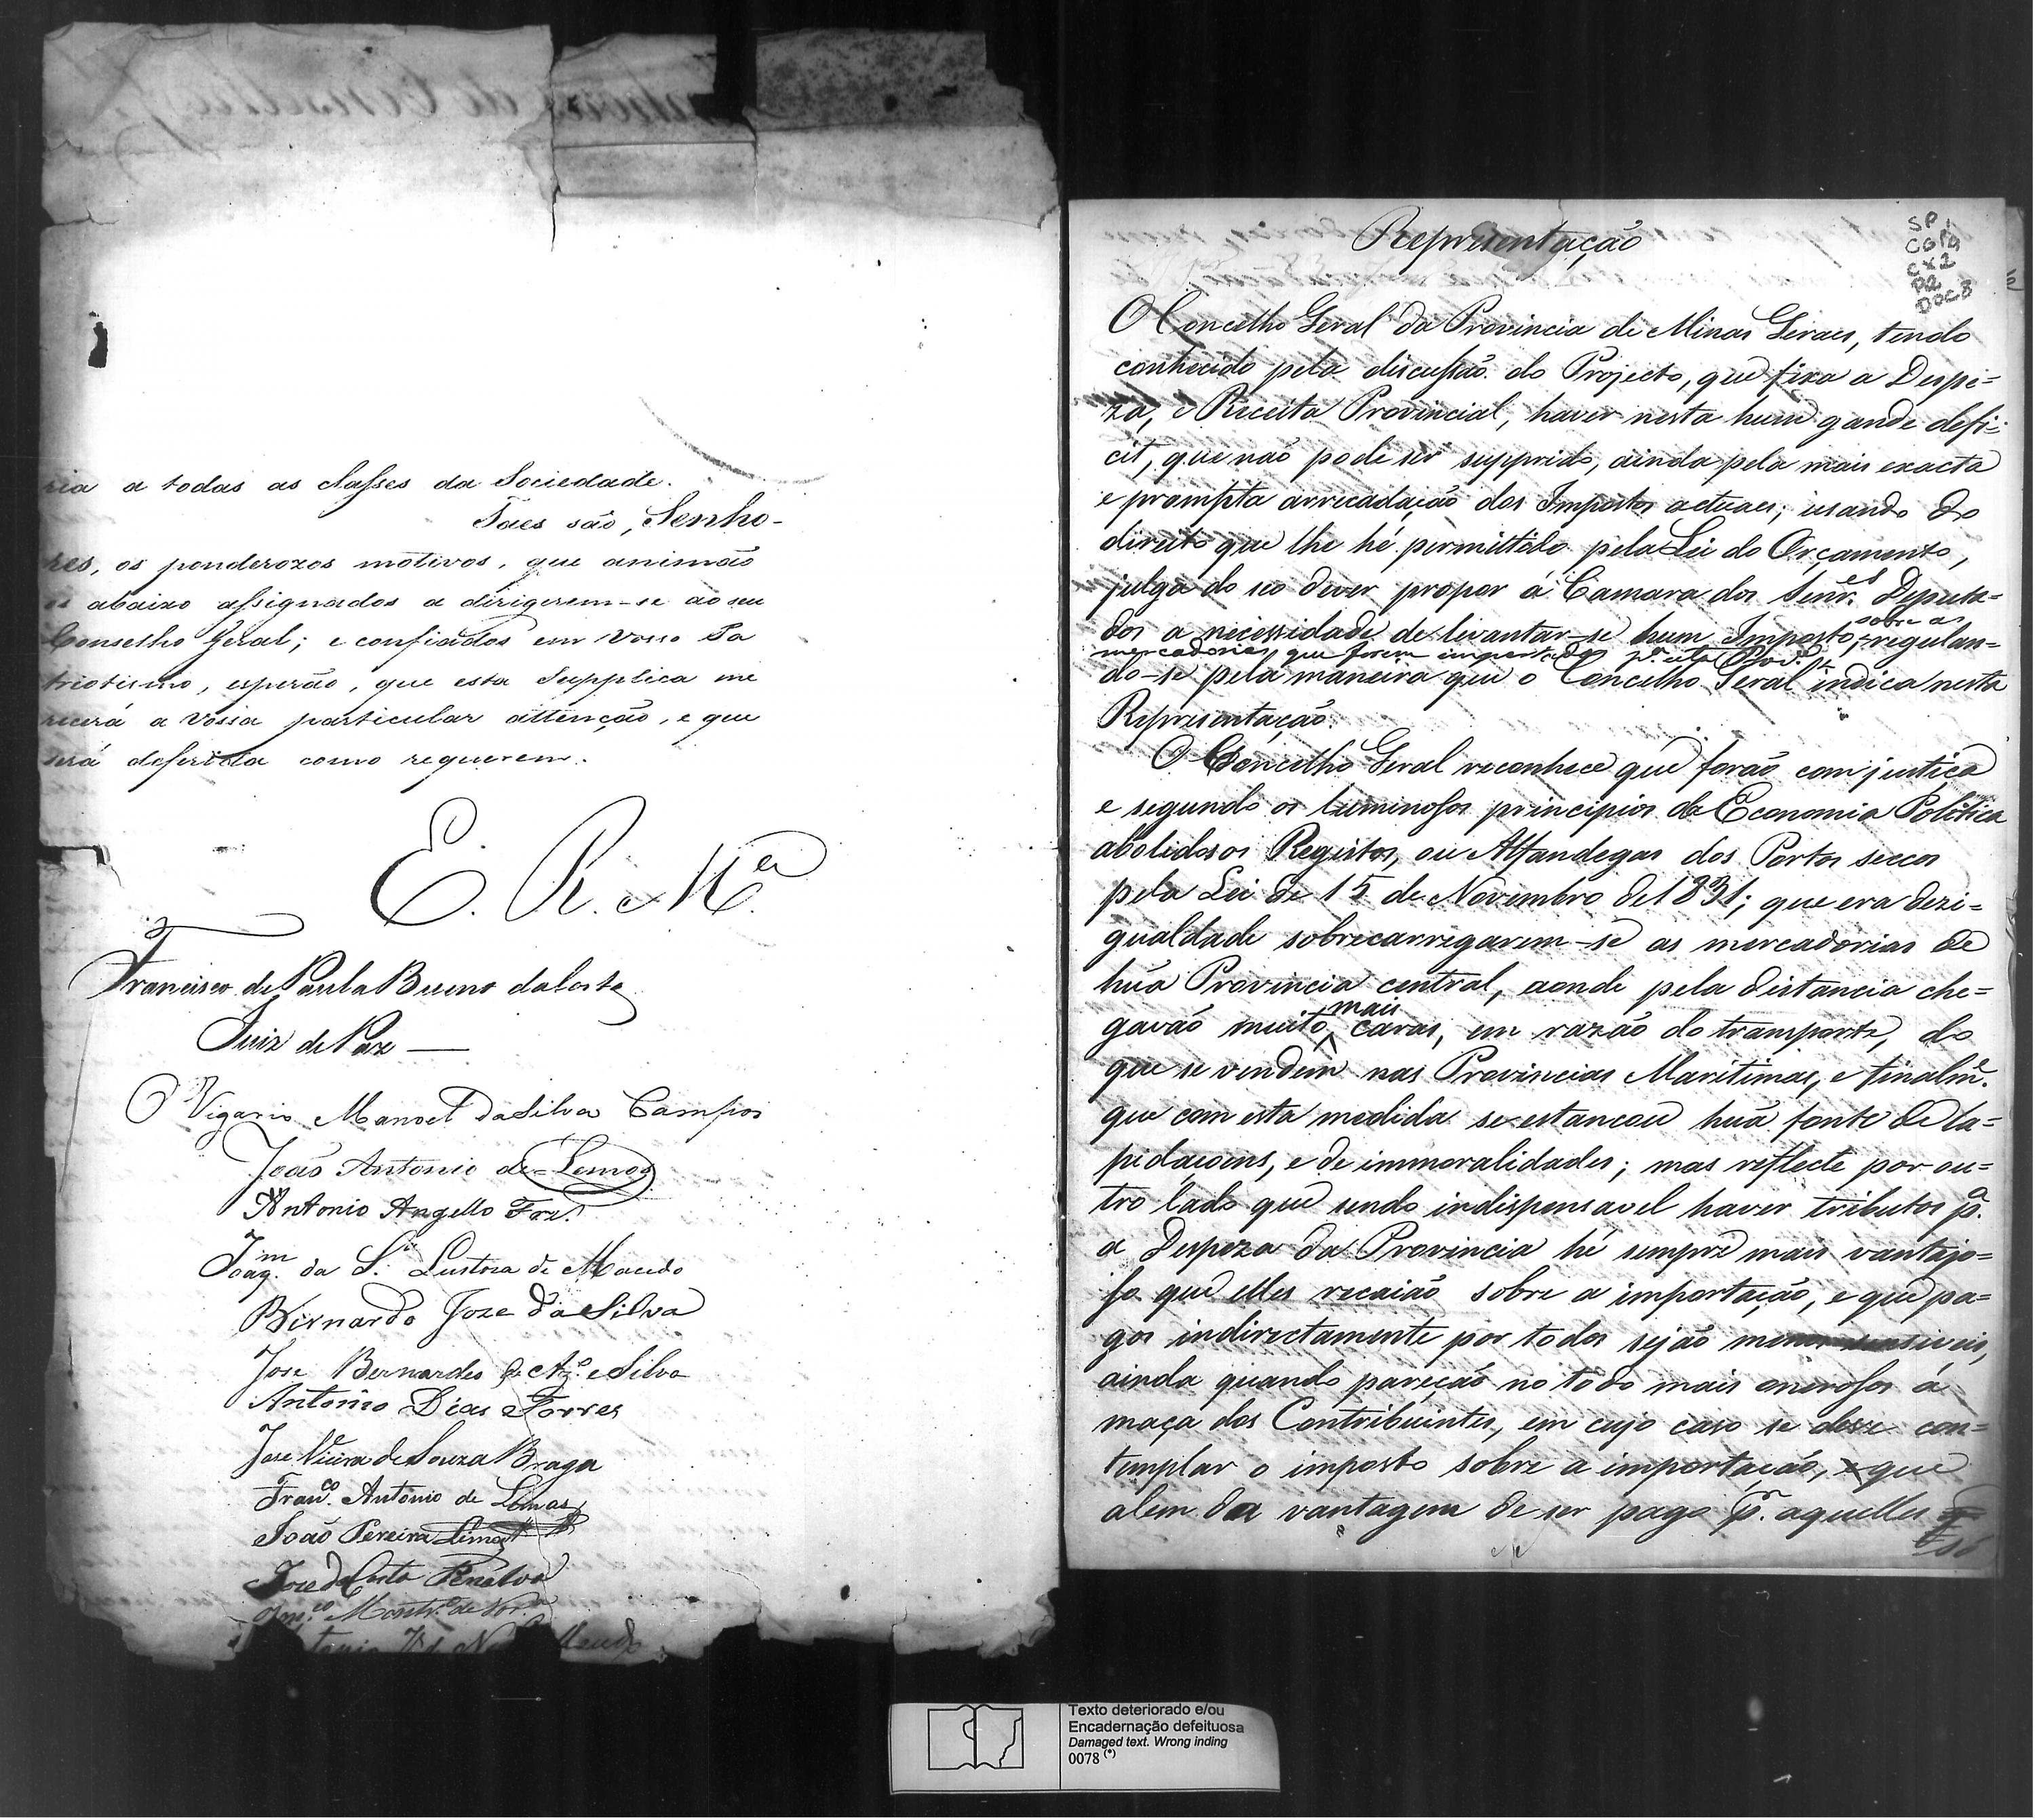 ria a todas as classes da Sociedade.
Taes são, Senho-
res, os ponderozos motivos, que animão
os abaixo assignados a dirigerem-se ao seu
Conselho Geral; e confiados em vosso Pa
triotismo, esperão, que esta Supplica me
recerá a vossa particular attenção, e que
será deferida como requerem.
E. R. M.ce
Francisco de Paula Bueno da Costa
Juiz de Paz —
O Vigario Manoel da Silva Campos
João Antonio de Lemos
Antonio Angello Frz.
Joaq.m da S.a Lustoza de Macedo
Bernardo Joze da Silva
Joze Bernardes de Az.o e Silva
Antonio Dias Torres
Jose Vieira de Souza Braga
Fran.co Antonio de Lemos
João Pereira Lima
Joze da Costa Penalva
Representação
SP
CGP1
CX2
P2
DOC8
O Concelho Geral da Provincia de Minas Geraes, tendo
conhecido pela discussão do Projecto, que fixa a Despe=
za, e Receita Provincial, haver nesta hum gande defi=
cit, que não pode ser supprido, ainda pela mais exacta
e prompta arrecadação dos Impostos actuaes; usando do
direito que lhe hé permittido pela Lei do Orçamento,
julga do seo dever propor á Camara dos Senr.es Deputa=
dos a necessidade de levantar-se hum Imposto, sobre as
mercadorias que forem importadas p.a esta Prov.a regulan=
do-se pela maneira que o Concelho Geral indica nesta
Representação.
O Concelho Geral reconhece que forão com justiça
e segundo os luminosos principios da Economia Politica
abolidos os Registos, ou Alfandegas dos Portos seccos
pela Lei de 15 de Novembro de 1831; que era dezi=
gualdade sobrecarregarem-se as mercadorias de
hũa Provincia central, aonde pela distancia che=
gavão muito mais caras, em razão do transporte, do
que se vendem nas Provincias Maritimas, e finalm.e
que com esta medida se estancou hũa fonte de la=
pidaçoens, e de immoralidades; mas reflecte por ou=
tro lado que sendo indispensavel haver tributos p.a
a Despeza da Provincia hé sempre mais vantajo=
so que elles recaião sobre a importação, e que pa=
gos indirectamente por todos sejão menos sensiveis,
ainda quando pareção no todo mais onerosos á
maça dos Contribuintes, em cujo caso se deve con=
templar o imposto sobre a importação, que
alem da vantagem de ser pago p.r aquelles
Texto deteriorado e/ou
Encadernação defeituosa
Damaged text. Wrong inding
0078 (*)